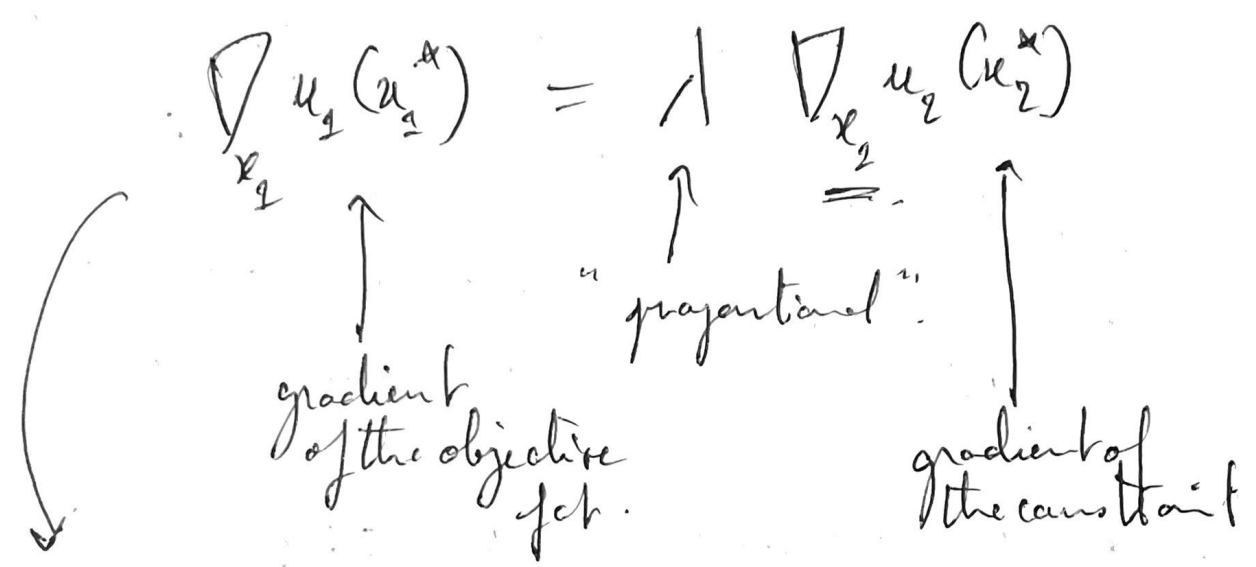 ∇_{x_1} u_1(x_1^*) = λ ∇_{x_2} u_2(x_2^*)
"proportional".
gradient
of the objective
fct.
gradient of
the constraint